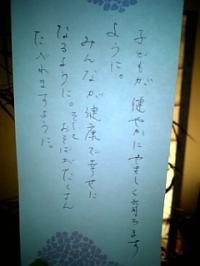 子どもが健やかにやさしく育ちます
ように。
みんなが健康で幸せに
なるように。そして
おそばがたくさん
たべれますように。